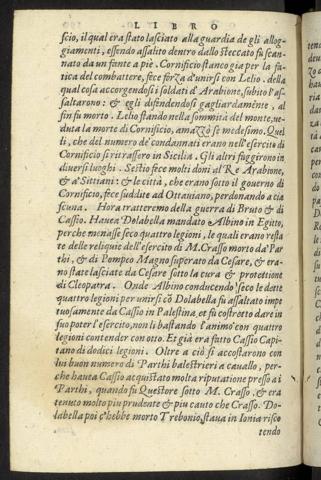 LIBRO
scio, il qual era stato lasciato alla guardia de gli allog
giamenti, essendo assalito dentro dallo steccato fu scan
nato da un fante a piè. Cornificio stanco gia per la fa
tica del combattere, fece forza d'unirsi con Lelio. della
qual cosa accorgendosi i soldati d'Arabione, subito l'as
saltarono: & egli difendendosi gagliardamente, al
fin fu morto. Lelio stando nella sommità del monte, ve
duta la morte di Cornificio, amazzò se medesimo. Quel
li, che del numero de condannati erano nell'esercito di
Cornificio si ritrassero in Sicilia. Gli altri fuggirono in
diversi luoghi. Sestio fece molti doni al Re Arabione,
& a' Sittiani: & le città, che erano sotto il governo di
Cornificio, fece suddite ad Ottauiano, perdonando a cia
scuna. Hora tratteremo della guerra di Bruto & di
Cassio. Hauea Dolabella mandato Albino in Egitto,
perche menasse seco quattro legioni, le quali erano resta
te delle reliquie dell'esercito di M. Crasso morto da' Par
thi, & di Pompeo Magno superato da Cesare, & era-
no state lasciate da Cesare sotto la cura & protettione
di Cleopatra. Onde Albino conducendo seco le dette
quattro legioni per unirsi cō Dolabella fu assaltato impe
tuosamente da Cassio in Palestina, et fu costretto dare in
suo poter l'esercito, non li bastando l'animo con quattro
legioni contender con otto. Et già era fatto Cassio Capi-
tano di dodici legioni. Oltre a ciò si accostarono con
lui buon numero di Parthi balestrieri a cauallo, per-
che haueua Cassio acquistato molta riputatione presso a i
Parthi, quando fu Questore sotto M. Crasso, & era
tenuto molto piu prudente & piu cauto che Crasso. Do-
labella poi c'hebbe morto Trebonio, staua in Ionia risco
tendo